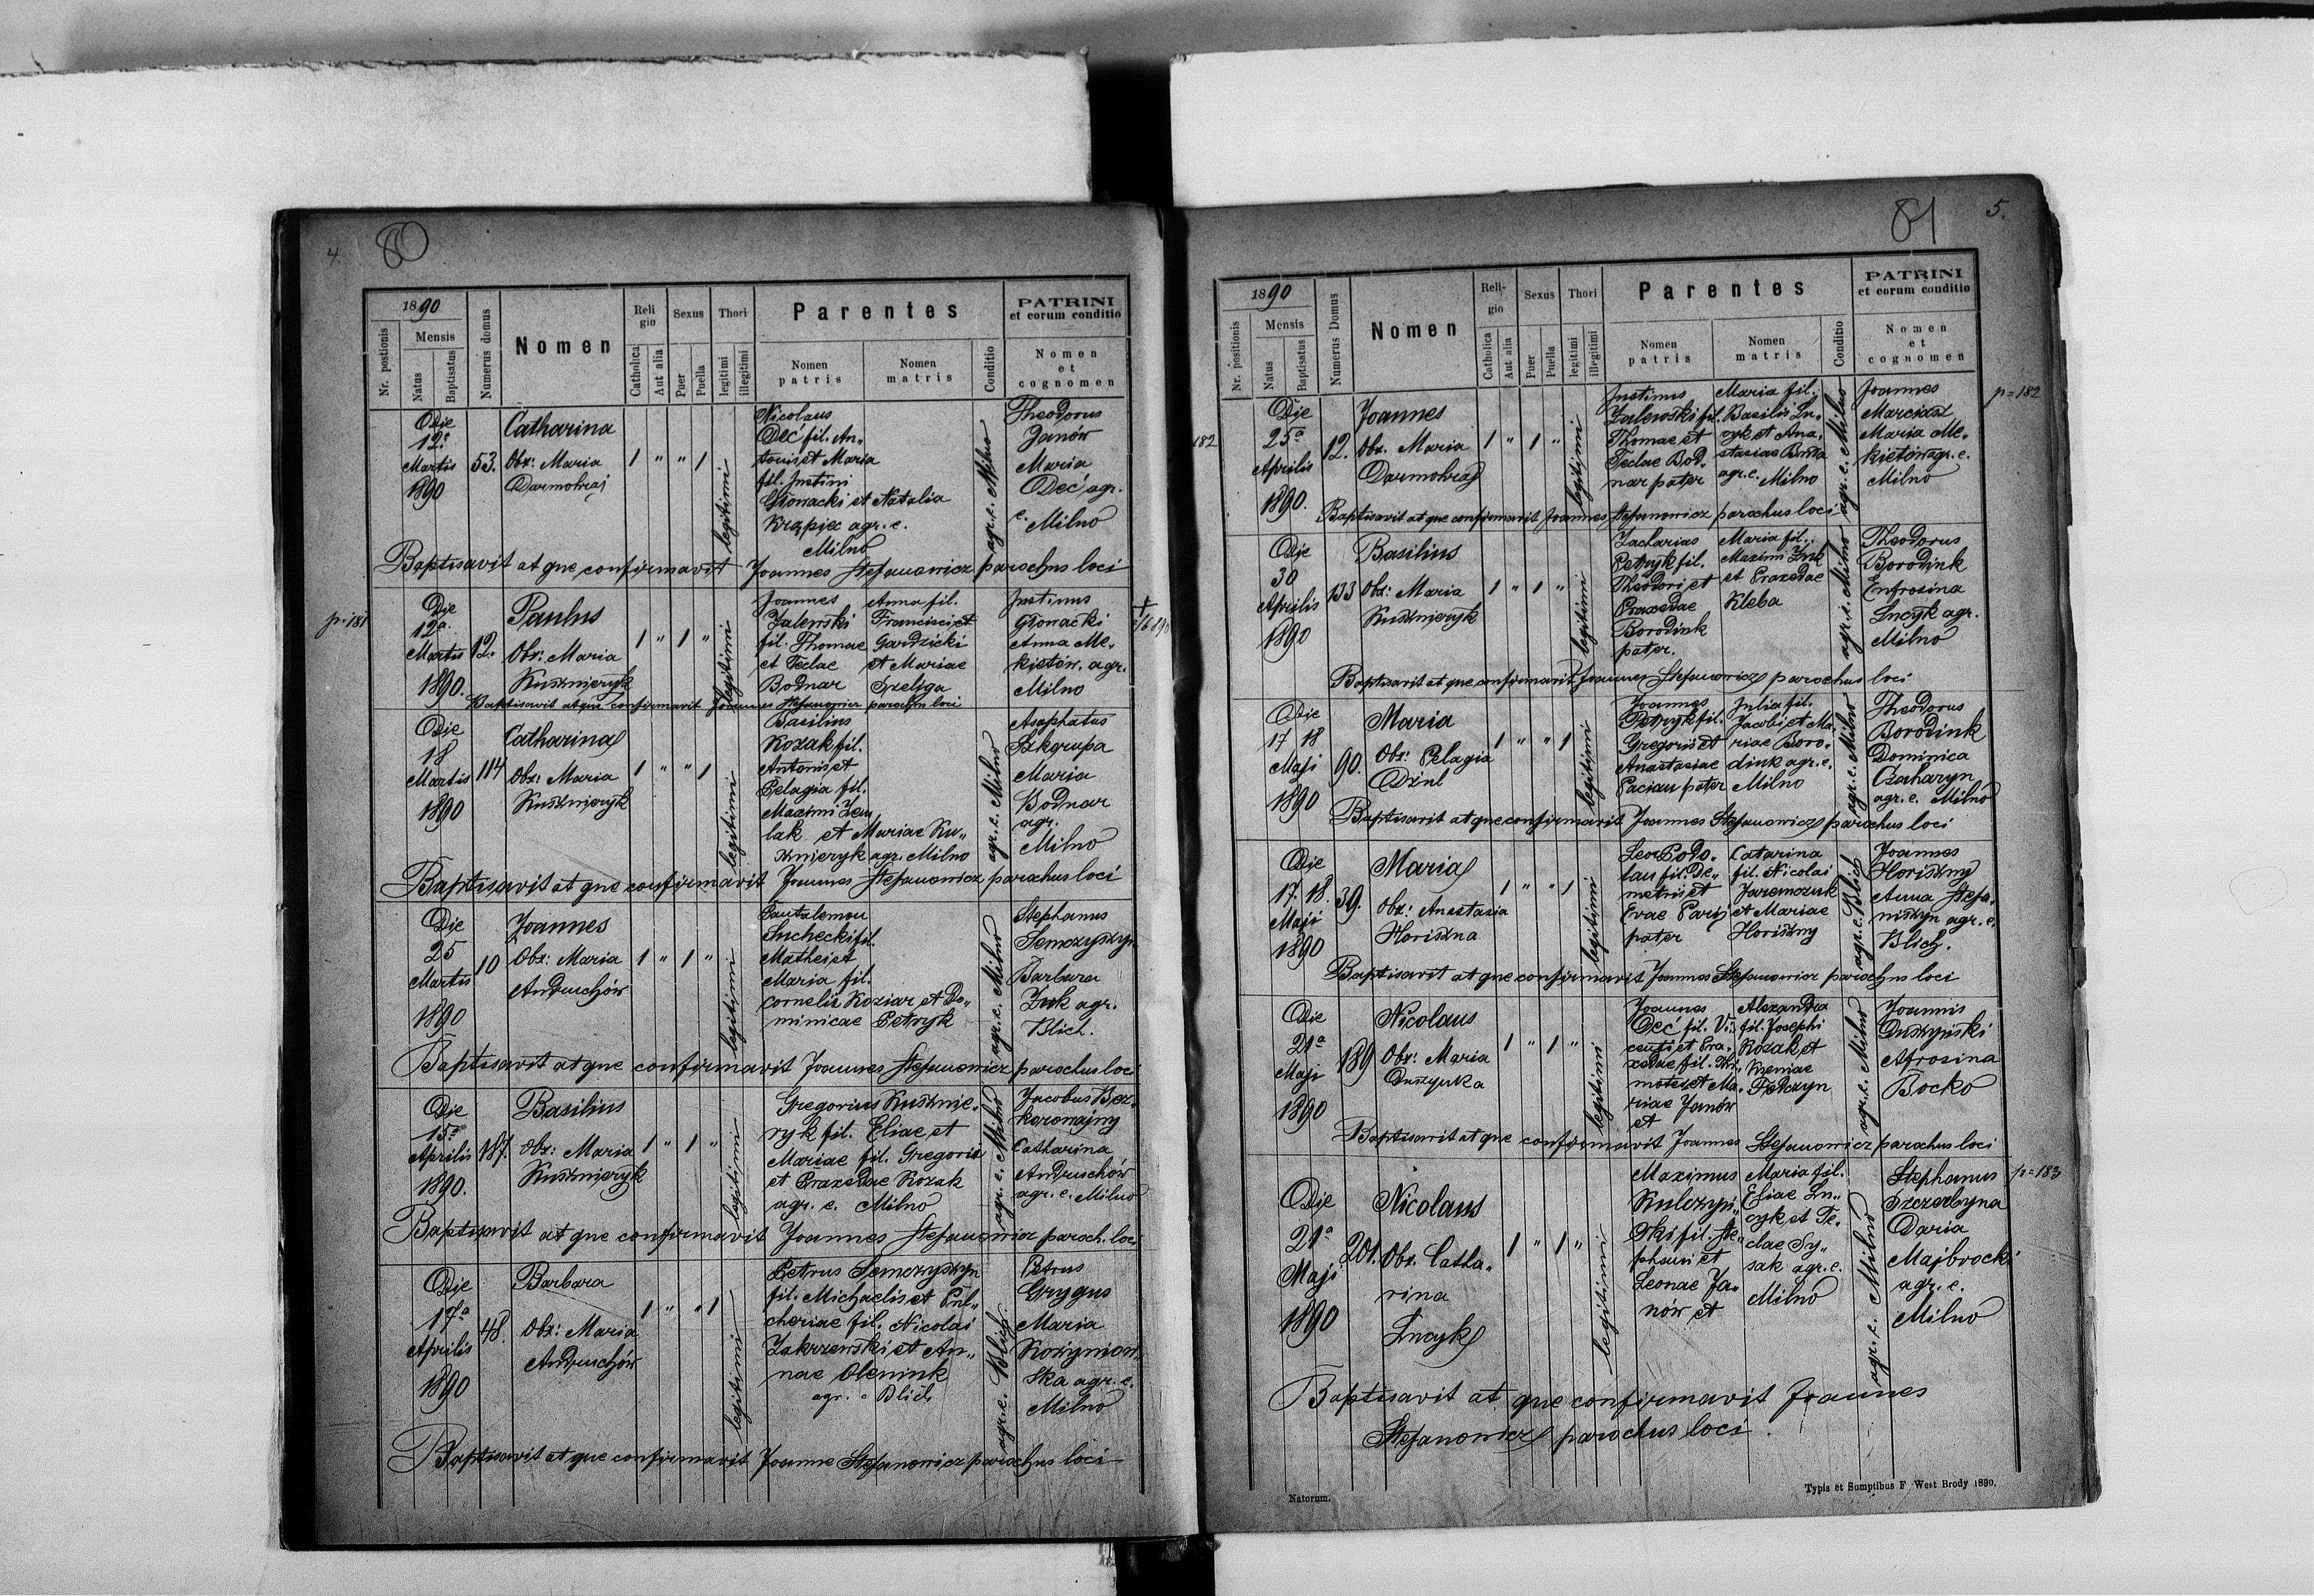 4.
80
1890
Nr. postionis
Mensis
Natus
Baptisatus
Numerus domus
Nomen
Reli
gio
Catholica
Aut alia
Sexus
Puer
Puella
Thori
legitimi
illegitimi
Parentes
Nomen
patris
Nomen
matris
Conditio
PATRINI
et eorum conditio
Nomen
et
cognomen
Die
12a
Martis
1890
53.
Catharina
Obs: Maria
Darmohraj
1 " " 1
legitimi
Nicolaus
Deć fil. An„
tonis et Maria
fil. Justini
Głowacki et Natalia
Krąpiec agr. c.
Milno
agr. c. Milno
Theodorus
Janów
Maria
Deć agr.
c. Milno
Baptisavit at que confirmavit Joannes Stefanowicz parochus loci
p. 181
Die
12a
Martis
1890.
12.
Paulus
Obs: Maria
Kusznieryk
1 " 1 "
legitimi
Joannes Anna fil.
Zalewski Francisci et
fil. Thomae Gardzicki
et Teclae et Mariae
Bodnar Szeliga
Justinus
Głowacki
Anna Me„
kietów. agr.
Milno
Baptisavit at que confirmavit Joannes Stefanowicz parochus loci
Die
18
Martis
1890
114
Catharina
Obs: Maria
Kusznieryk
1 " " 1
legitimi
Basilius
Kozak fil.
Antonis et
Pelagia fil.
Maximi
lak et Mariae Ku„
sznieryk agr. Milno
agr. c. Milno
Asaphatus
Szkgrupa
Maria
Bodnar
agr.
Milno
Baptisavit at que confirmavit Joannes Stefanowicz parochus loci
Die
25
Martis
1890
10
Joannes
Obs: Maria
Andruchów
1 " 1 "
legitimi
Pantalemon
Suchecki fil.
Mathei et
Maria fil.
Cornelii Koziar et Do„
minicae Petryk
agr. c. Milno
Stephanus
Semczyszyn
Barbara
Żuk agr.
Blich.
Baptisavit at que confirmavit Joannes Stefanowicz parochus loci
Die
15a
Aprilis
1890.
187.
Basilius
Obs: Maria
Kusznieryk
1 " 1 "
legitimi
Gregorius Kusznie„
ryk fil. Eliae et
Mariae fil. Gregorii
et Praxedae Kozak
agr. c. Milno
agr. c. Milno
Jacobus Bez„
koromajny
Catharina
Andruchów
agr. c. Milno
Baptisavit at que confirmavit Joannes Stefanowicz paroch. loci
Die
17a
Aprilis
1890
48.
Barbara
Obs: Maria
Andruchów
1 " " 1
legitimi
Petrus Semczyszyn
fil. Michaelis et Pul„
cheriae fil. Nicolai
Zakrzewski et An„
nae Oleniuk
agr. c Blich
agr. c. Blich
Petrus
Grygus
Maria
Kożyniow„
ska agr. c.
Milno
Baptisavit at que confirmavit Joanne Stefanowicz parochus loci
81
5.
1890
Nr. positionis
Mensis
Natus
Baptisatus
Numerus Domus
Nomen
Reli-
gio
Catholica
Aut alia
Sexus
Puer
Puella
Thori
legitimi
illegitimi
Parentes
Nomen
patris
Nomen
matris
Conditio
PATRINI
et eorum conditio
Nomen
et
cognomen
p=182
182
Die
25a
Aprilis
1890.
12.
Joannes
Obs. Maria
Darmohraj
1 " 1 "
legitimi
Justinus Maria fil.
Zalewski fil. Basilis Łu„
Thomae et cyk et Ana„
Teclae Bod„ stasiae Buta
nar pater agr. c. Milno
agr. c. Milno
Joannes
Marciasz
Maria Me„
kietów agr. c.
Milno
Baptisavit at que confirmavit Joannes Stefanowicz parochus loci
Die
30
Aprilis
1890
133
Basilius
Obs: Maria
Kusznieryk
1 " 1 "
legitimi
Zacharias Maria fil.
Petryk fil. Maximi Żuk
Theodori et et Praxedae
Praxedae Kleba
Borodiuk
pater.
agr. c. Milno
Theodorus
Borodiuk
Enfrosina
Łucyk agr.
Milno
Baptisavit at que confirmavit Joannes Stefanowicz parochus loci
Die
17 18
Maji
1890
90.
Maria
Obs: Pelagia
Dziul
1 " " 1
legitimi
Joannes Julia fil.
Petryk fil. Jacobi et Ma„
Gregoris et riae Boro„
Anastasiae diuk agr. c.
Pacian pater Milno
agr. c. Milno
Theodorus
Borodiuk
Dominica
Czacharyn
agr. c. Milno
Baptisavit at que confirmavit Joannes Stefanowicz parochus loci
Die
17. 18.
Maji
1890
39.
Maria
Obs: Anastasia
Horiszna
1 " " 1
legitimi
Leon Podo„ Catarina
lan fil. De„ fil. Nicolai
metrii et Jaremczuk
Evae Parij et Mariae
pater Horiszny
agr. c. Blich
Joannes
Horiszny
Anna Stefa„
niszyn agr. c.
Blich.
Baptisavit at que confirmavit Joannes Stefanowicz parochus loci
Die
21a
Maji
1890
189
Nicolaus
Obs: Maria
Duszynka
1 " 1 "
legitimi
Joannes Alexandra
Deć fil. Vi„ fil. Josephi
centi et Pra„ Kozak et
xedae fil. Thi„ Xseniae
motei et Ma„ Fedczyn
riae Janów
et
agr. c. Milno
Joannis
Duszyński
Afrosina
Bocko
Baptisavit at que confirmavit Joannes Stefanowicz parochus loci
Die
21a
Maji
1890
201.
Nicolaus
Obs. Catha„
rina
Łucyk
1 " 1 "
legitimi
Maximus Maria fil.
Kulczyń„ Eliae Łu„
ski fil. Ste„ cyk et Te„
phani et clae Sy„
Leonae Ja„ sak agr. c.
nów et Milno
agr. c. Milno
Stephanus
Szczerbyna
Daria
Majbrocki
agr. c.
Milno
p=183
Baptisavit at que confirmavit Joannes
Stefanowicz parochus loci.
Natorum.
Typis et Sumptibus F West Brody 1890.